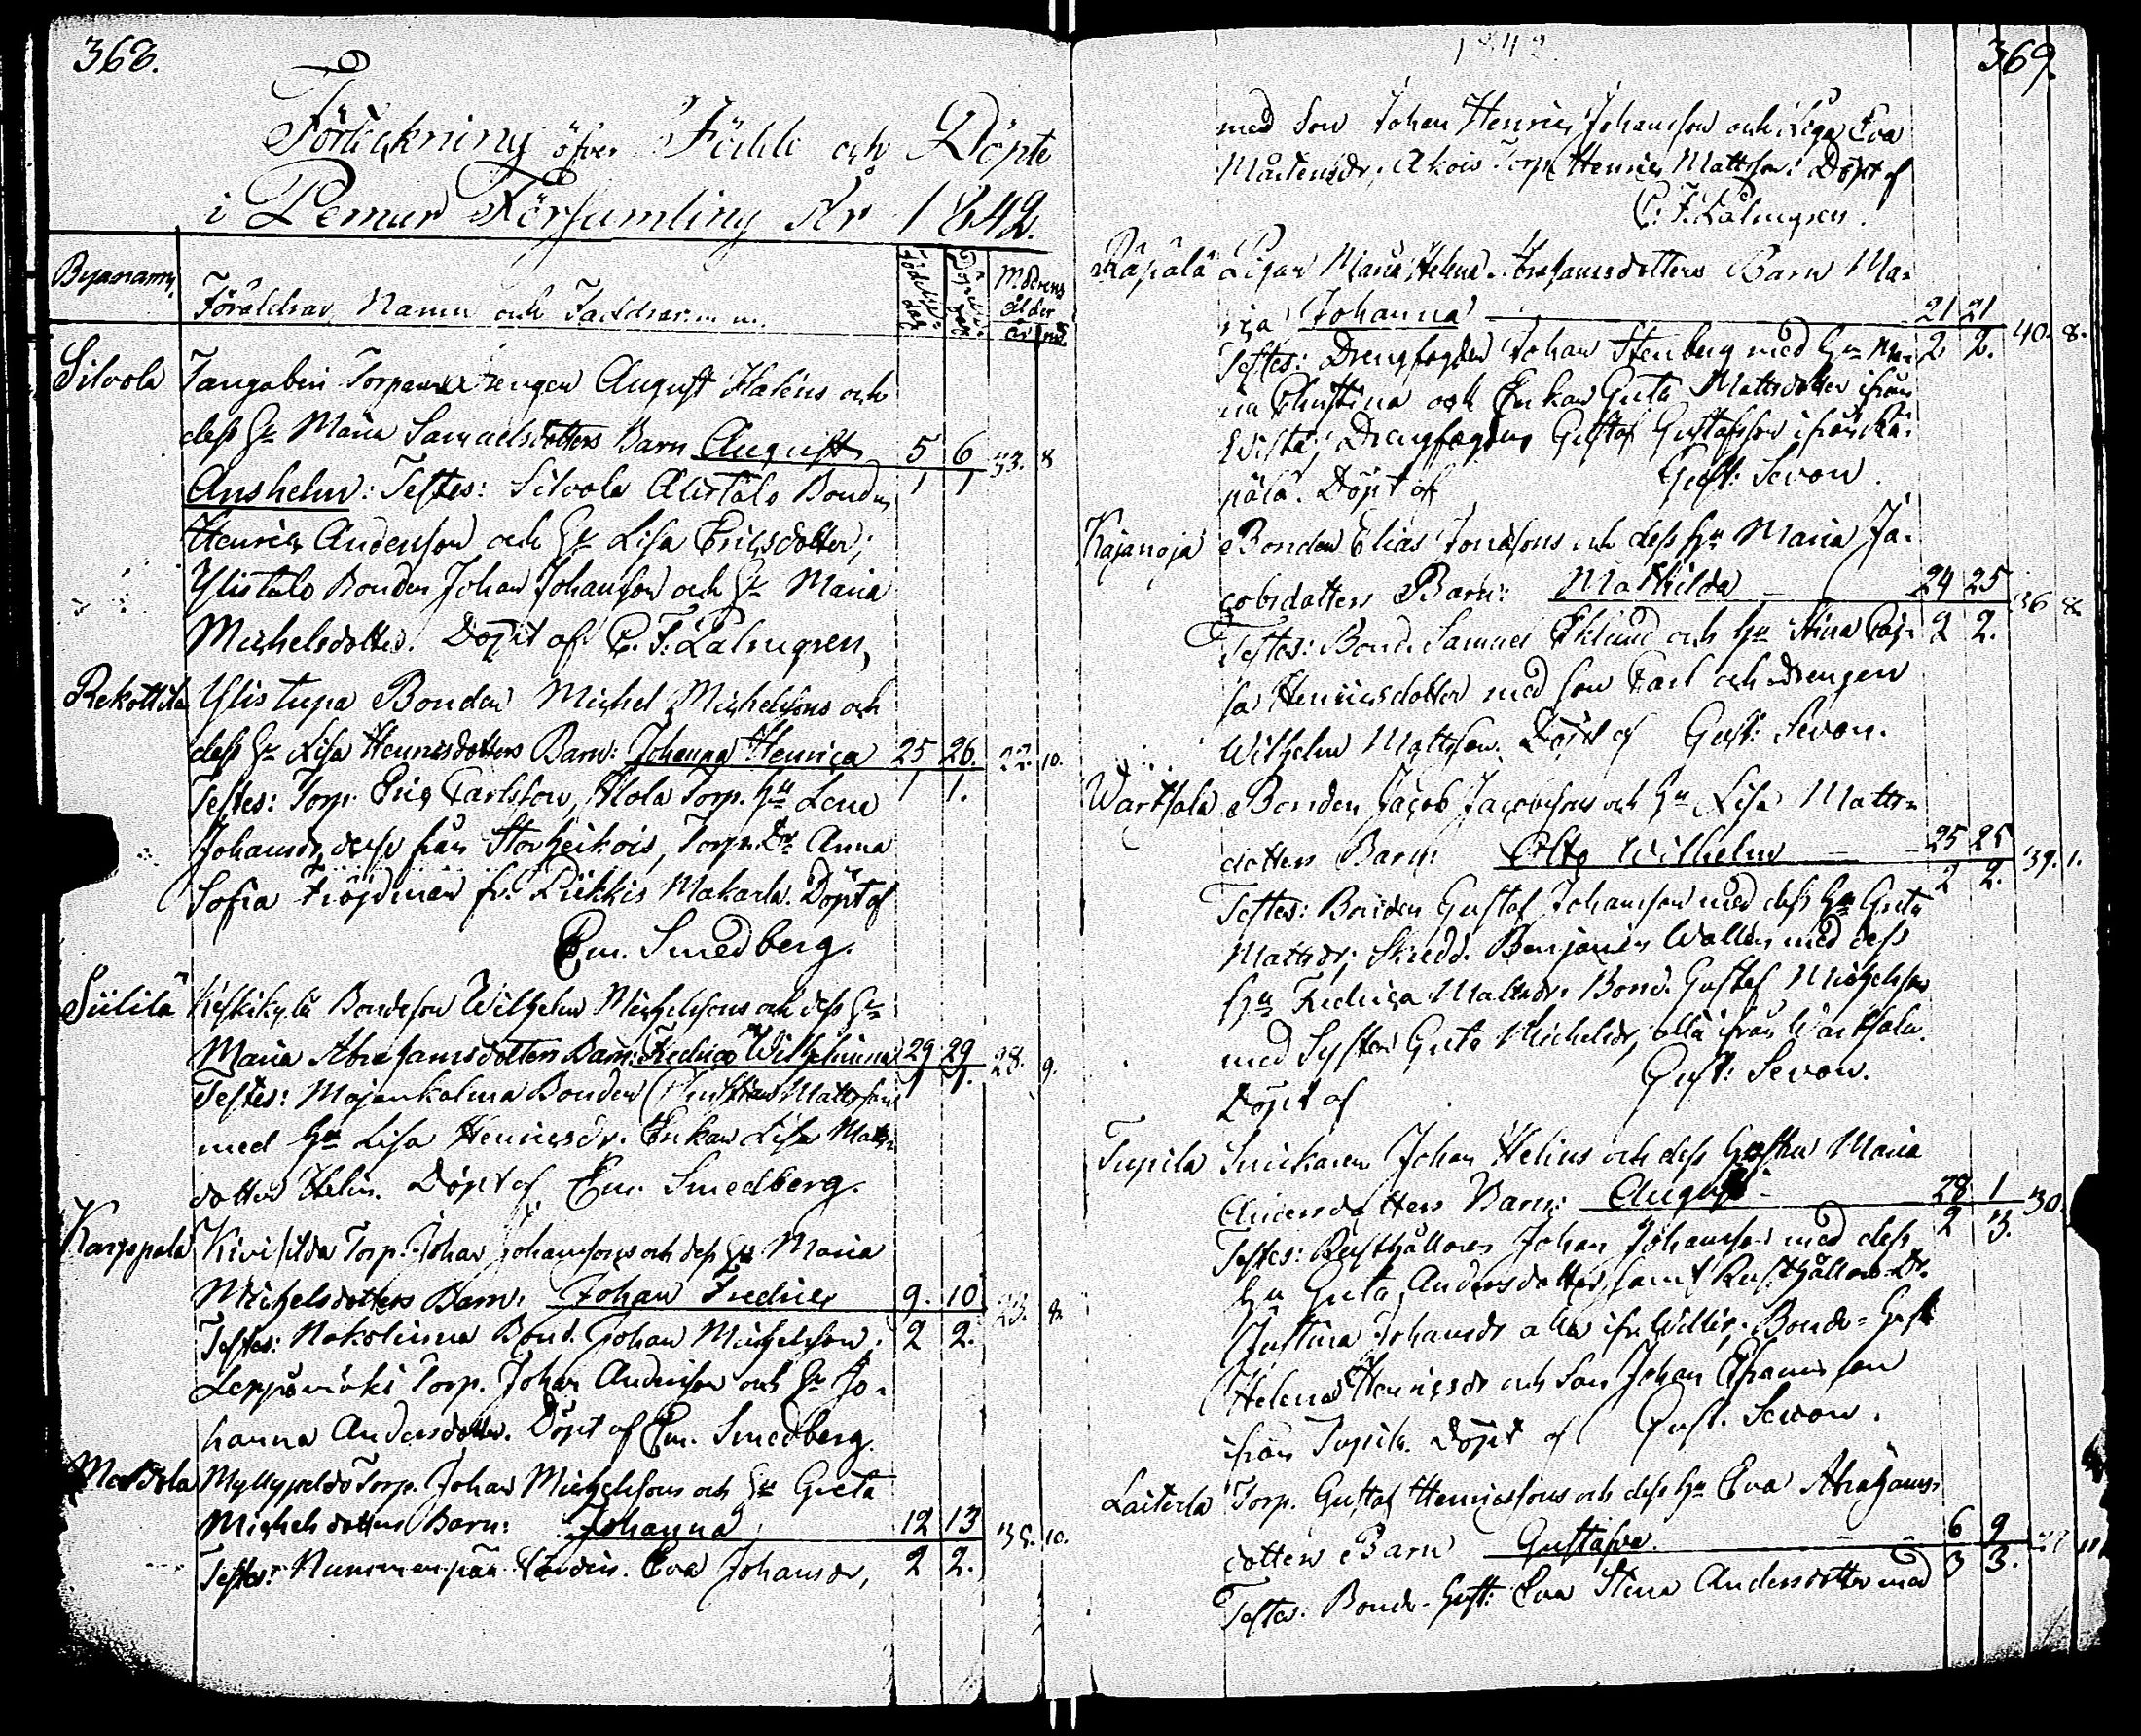 368.
Förtekning öfver Födde och Döpte
i Pemar Församling År 1842.
Byanamn, Föräldrar, Namn och Faddrar m. m. Födelsedag Döpelsedag Moderns ålder år md.
Silvola Torpare drengen August Haléns och
dess Hu Maria Samuelsdotters Barn August 5/1 6/1 33. 8
Anshelm: Testes: Silvola Alistalo Bonden
Henric Andersson och Hu Lisa Ericsdotter;
Ylistalo Bonden Johan Johansson och Hu Maria
Michelsdotter. Döpt af C. F. Palmgren,
Rekottila Ylistupa Bonden Michel Michelssons och
dess Hu Lisa Henricsdotters Barn: Johanna Henrica 25/1 26/1. 22. 10.
Testes: Torp. Eric Carlsson, Torp. Hu Lena
Johansdr, desse från Storheikois, Torp. Dr. Anna
Sofia Fröjdman fr. Piikkis Makarla. Döpt af
Em. Smedberg.
Siililä Keskikylä Bondeson Wilhelm Michelssons och dess Hu
Maria Abrahamsdotters Barn: Fredrica Wilhelmina 29/1 29/1. 28. 9.
Testes: Majankalma Bonden Christian Mattsson
med Hu Lisa Henricsdr. Enkan Lisa Matts-
dotter Helin. Döpt af Em. Smedberg.
Karppala Torp. Johan Johanssons och dess Hu Maria
Michelsdotters Barn, Johan Fredric 9/2. 10/2. 23. 8.
Testes: Nokolinna Bond. Johan Michelsson,
Leppämäki Torp. Johan Andersson och Hu Jo-
hanna Andersdotter. Döpt af Em. Smedberg.
Torp. Johan Michelssons och Hu Greta
Michelsdotters Barn: Johanna 12/2 13/2. 10.
Testes: Nummenpää Eva Johansdr,
1842.
369.
med Son Johan Henric Johansson och Piga Eva
Mårtensdr, Akois Torp. Henric Mattsson. Döpt af
C. F. Palmgren.
Räpälä Pigan Maria Helena Abrahamsdotters Barn Ma-
ria Johanna 21/2 21/2. 40. 8.
Testes: Drengfogden Johan Stenberg med Hu Ma-
ria Christina och Enkan Greta Mattsdotter ifrån
Wista, Drengfogden Gustaf Gustafsson ifrån Rä-
pälä. Döpt af Gust: Sevon.
Kajanoja Bonden Elias Jonassons och dess Hu Maria Ja-
cobsdotters Barn: Mathilda 24/2 25/2. 36 8
Testes: Bond. Samuel Eklund och Hu Stina Caj-
sa Henricsdotter med son Carl och drengen
Wilhelm Mattsson. Döpt af Gust: Sevon.
Wartsala Bonden Jacob Jacobssons och Hu Lisa Matts-
dotters Barn: Otto Wilhelm 25/2 25/2. 39. 1.
Testes: Bonden Gustaf Johansson med dess Hu Greta
Mattsdr; Skredd. Benjamin Wallen med dess
Hu Fredrica Mattsdr. Bond. Gustaf Michelsson
med Syster Greta Michelsdr, alla ifrån Wartsala.
Döpt af Gust: Sevon.
Tupila Snickaren Johan Helins och dess Hustru Maria
Andersdotters Barn: August 28/2 1/3. 30.
Testes: Rusthållaren Johan Johansson med dess
Hu Greta Andersdotter, samt Rusthållare Dr.
Justina Johansdr alla ifr. Willis, Bonde-Hust
Helena Henricsdr och Son Johan Efraimsson
ifrån Tupila. Döpt af Gust. Sevon.
Laiterla Torp. Gustaf Henricssons och dess Hu Eva Abrahams-
dotters Barn Gustafva. 6/3 9/3. 11
Testes: Bonde-Hust: Eva Stina Andersdotter med